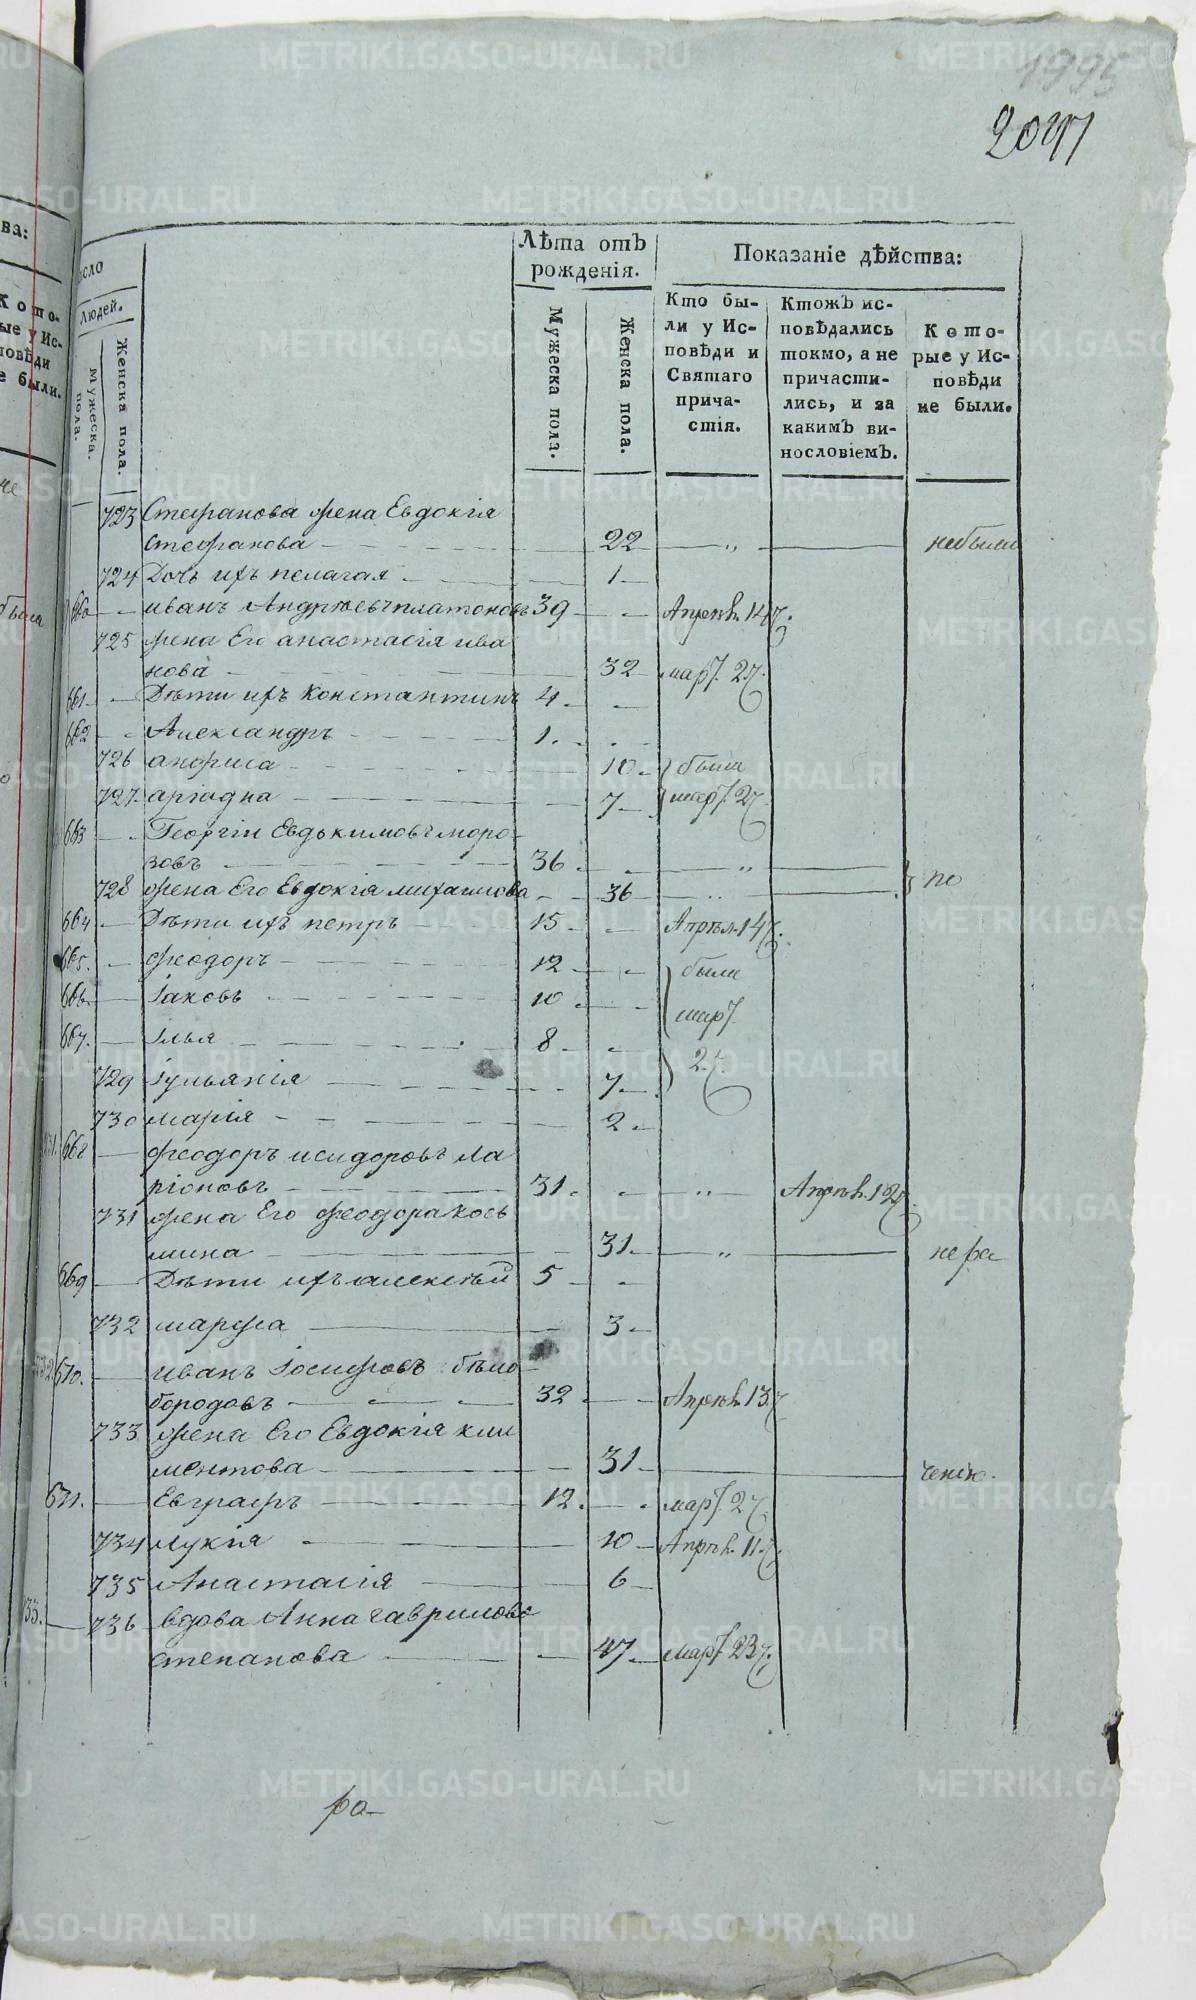 1995
2041
Лѣта отъ рожденія.
Показаніе дѣйства:
Людей.
Мужеска пола.
Женска пола.
Мужеска пола.
Женска пола.
Кто бы-
ли у Ис-
повѣди и
Святаго
прича-
стія.
Ктожъ ис-
повѣдались
токмо, а не
причасти-
лись, и за
какимъ ви-
нословіемъ.
Кото-
рые у Ис-
повѣди
не были.
723 Стефанова жена Евдокія
Стефанова 22 „ небыли
724 Дочь ихъ пелагая 1
660 иванъ Андреевъ платоновъ 39 Апрѣл. 14
725 жена Его анастасія ива
нова 32 март. 27
661 Дѣти ихъ Константинъ 4
662 Александръ 1
726 анфиса 10 были
727 аріадна 7 март. 27
663 Георгіи Евдокимовъ моро-
зовъ 36 „
728 жена Его Евдокія михаилова 36 „ по
664 Дѣти ихъ петръ 15 Апрѣл. 14
665 феодоръ 12 были
666 Іаковъ 10 март.
667 Илья 8
729 Іульянія 7 27
730 марія 2
668 феодоръ исидоровъ ла
ріоновъ 31 „ Апрѣл. 12
731 жена Его феодора кось
мина 31 „ нера
669 Дѣти ихъ алексѣй 5
732 марфа 3
670 иванъ Іосифовъ бѣло-
бородовъ 32 Апрѣл. 13
733 жена Его Евдокія кли
ментова 31 ченію.
671 Евграфъ 12 март. 27
734 лукія 10 Апрѣл. 11
735 Анастасія 6
736 вдова Анна гаврилова
степанова 47 март. 23
ра-